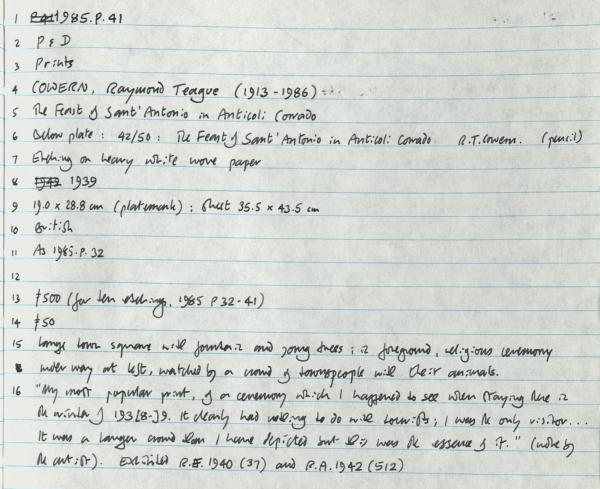 1 1985.P.41
2 P & D
3 Prints
4 COWERN, Raymond Teague (1913-1986)
5 The Feast of Sant'Antonio in Anticoli Corrado
6 Below plate: 42/50: The Feast of Sant'Antonio in Anticoli Corrado R.T. Cowern. (pencil)
7 Etching on heavy white wove paper
8 1942 1939
9 19.0 x 28.8 cm (platemark); sheet 35.5 x 43.5 cm
10 British
11 As 1985.P.32
12
13 £500 (for ten etchings, 1985 P 32-41)
14 £50
15 Large town square with fountain and young trees; in foreground, religious ceremony
under way at left, watched by a crowd of townspeople with their animals.
16 "My most popular print, of a ceremony which I happened to see when staying there in
the winter of 193[8-]9. It clearly had nothing to do with tourists; I was the only visitor...
It was a larger crowd than I have depicted but this was the essence of it." (note by
the artist). Exhibited R.E. 1940 (37) and R.A. 1942 (512)